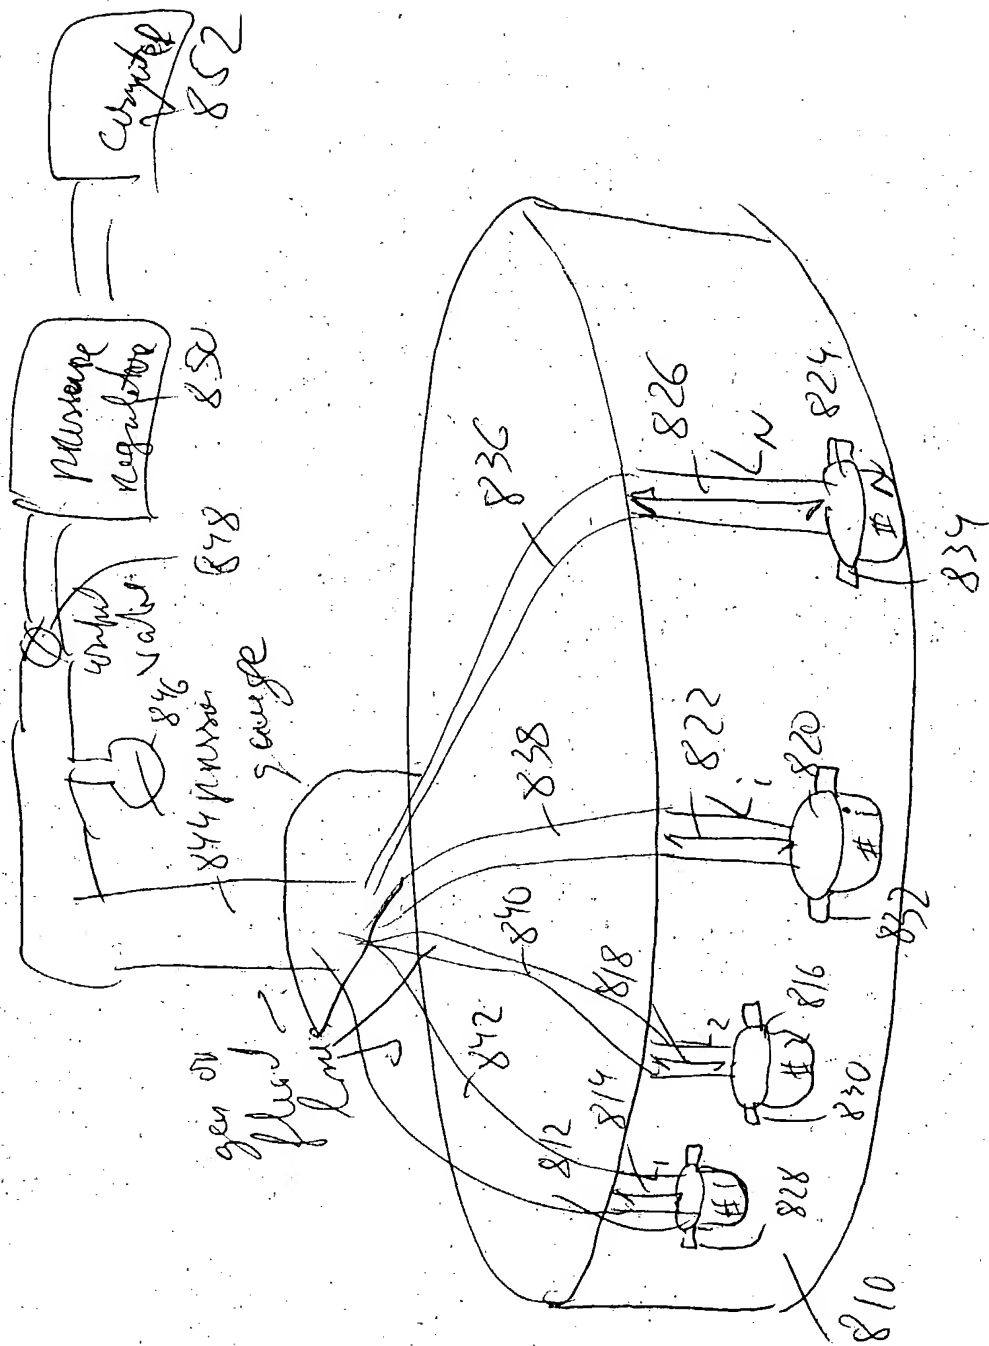 computer
852
pressure
regulator
850
848
control
valve
846
844 pressure
gauge
gas or
fluid
lines
836
838
840
842
826
LN
824
# N
834
822
Li
820
# i
832
818
L2
816
# 2
830
814
812
L1
# 1
828
810